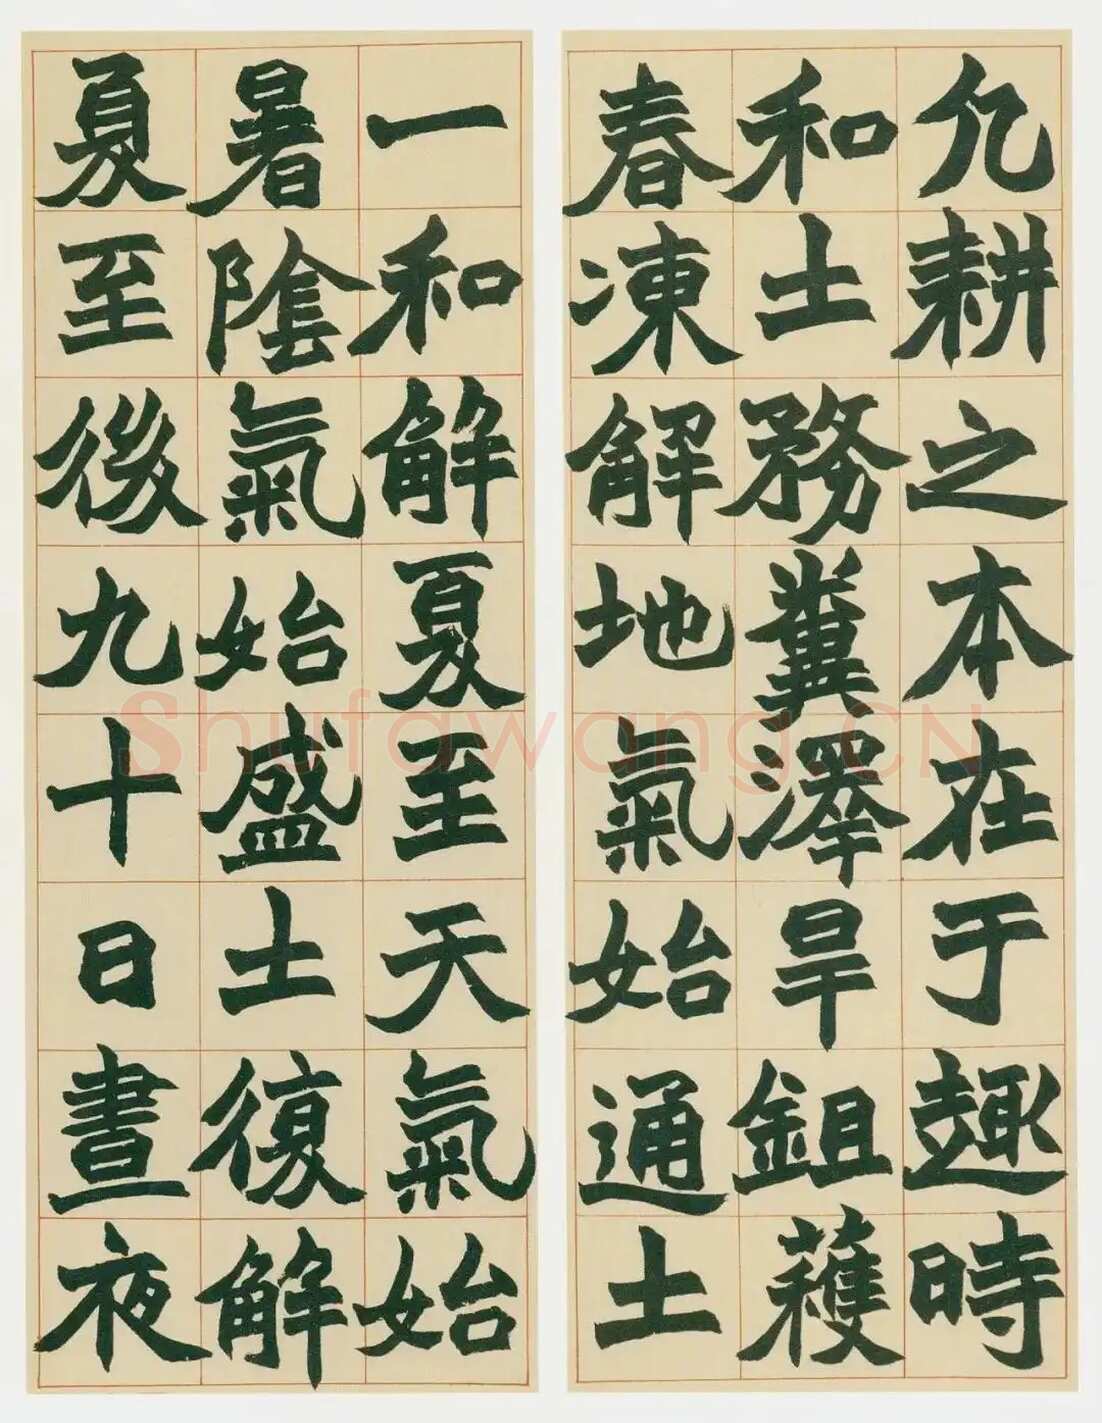 凡耕之本在于趣時
和土務糞澤旱鉏穫
春凍解地氣始通土
一和解夏至天氣始
暑陰氣始盛土復解
夏至後九十日晝夜
Shufawang.CN